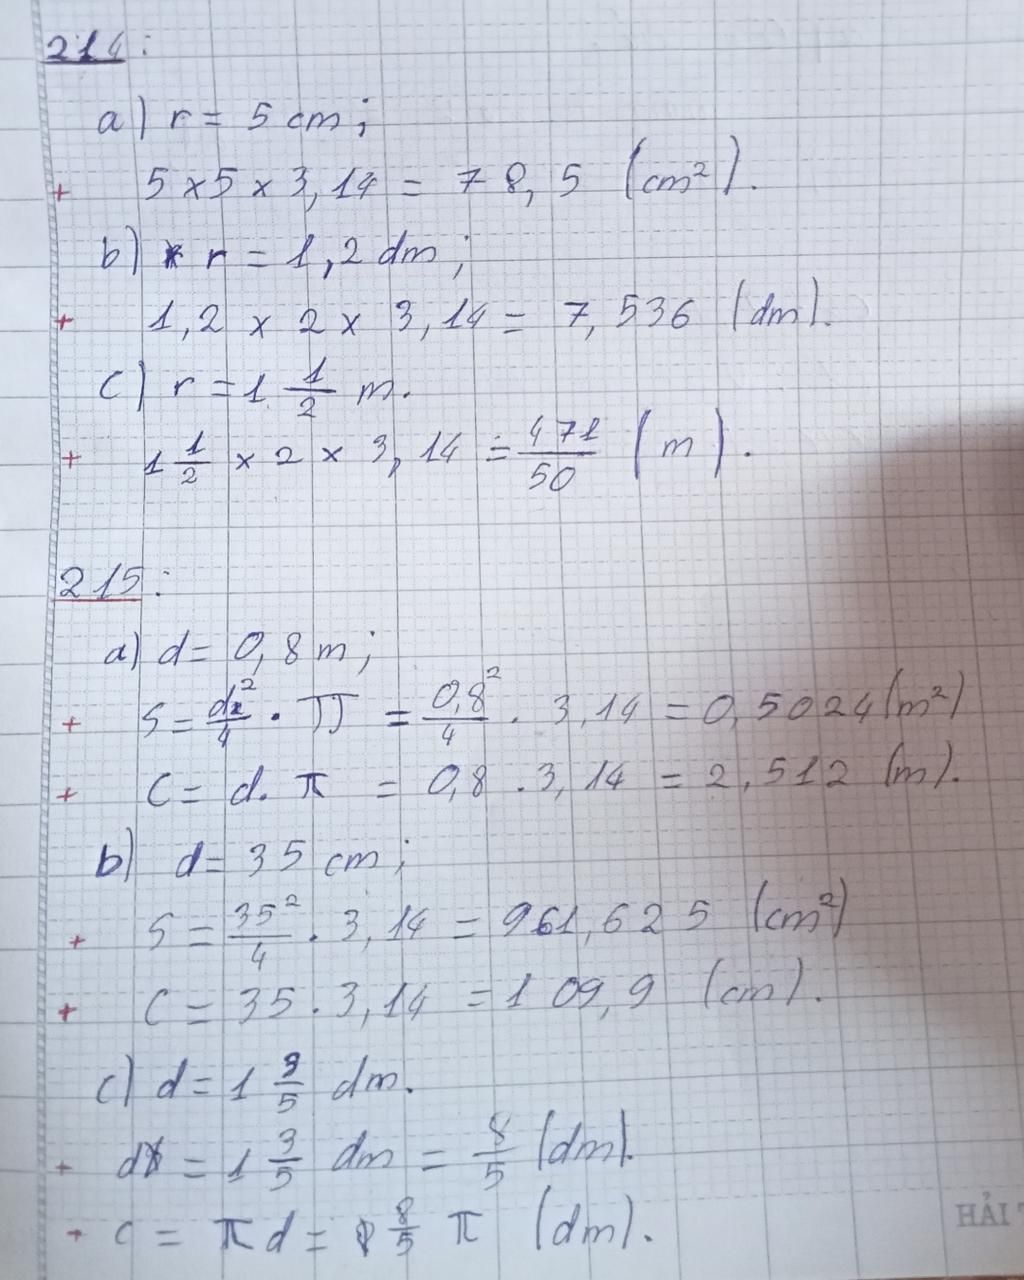 214:
a) r = 5 cm;
+ 5 x 5 x 3,14 = 78,5 (cm²).
b) r = 1,2 dm;
+ 1,2 x 2 x 3,14 = 7,536 (dm).
c) r = 1 1/2 m.
+ 1 1/2 x 2 x 3,14 = 471/50 (m).
215:
a) d = 0,8 m;
+ S = d²/4 . π = 0,8²/4 . 3,14 = 0,5024 (m²)
+ C = d. π = 0,8 . 3,14 = 2,512 (m).
b) d = 35 cm;
+ S = 35²/4 . 3,14 = 961,625 (cm²)
+ C = 35 . 3,14 = 109,9 (cm).
c) d = 1 3/5 dm.
+ d = 1 3/5 dm = 8/5 (dm).
+ C = πd = 8/5 π (dm).
HẢI